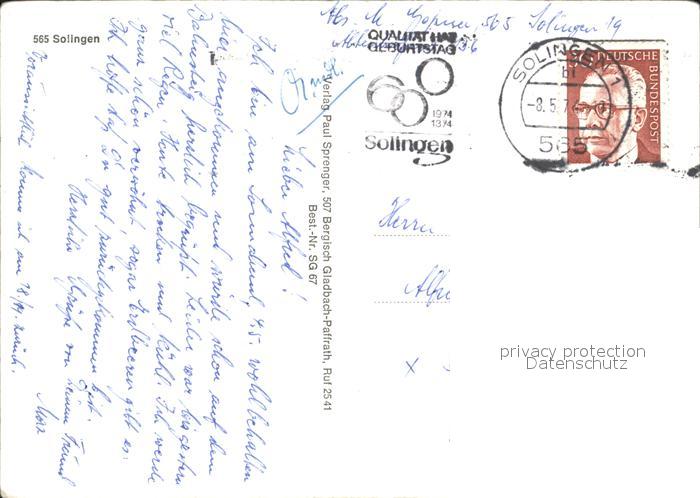 565 Solingen
565 Solingen 19
QUALITÄT HAT
GEBURTSTAG
1974
1374
Solingen
SOLINGEN 1
bf
-8.5.7
565
DEUTSCHE
BUNDESPOST
Verlag Paul Sprenger, 507 Bergisch Gladbach-Paffrath, Ruf 2541
Best.-Nr. SG 67
Herrn
Alfr
x
privacy protection
Datenschutz
Lieber Alfred!
Ich bin am Sonnabend, 4.5. wohlbehalten
hier angekommen und wurde schon auf dem
Bahnsteig herzlich begrüßt. Leider war bis gestern
viel Regen. Heute trocken und kühl. Ich werde
ganz schön verwöhnt, sogar Erdbeeren gibt es.
Ich hoffe daß Du gut zurückgekommen bist.
Herzliche Grüße von Deinem Freund
Max
Voraussichtlich komme ich am zurück.